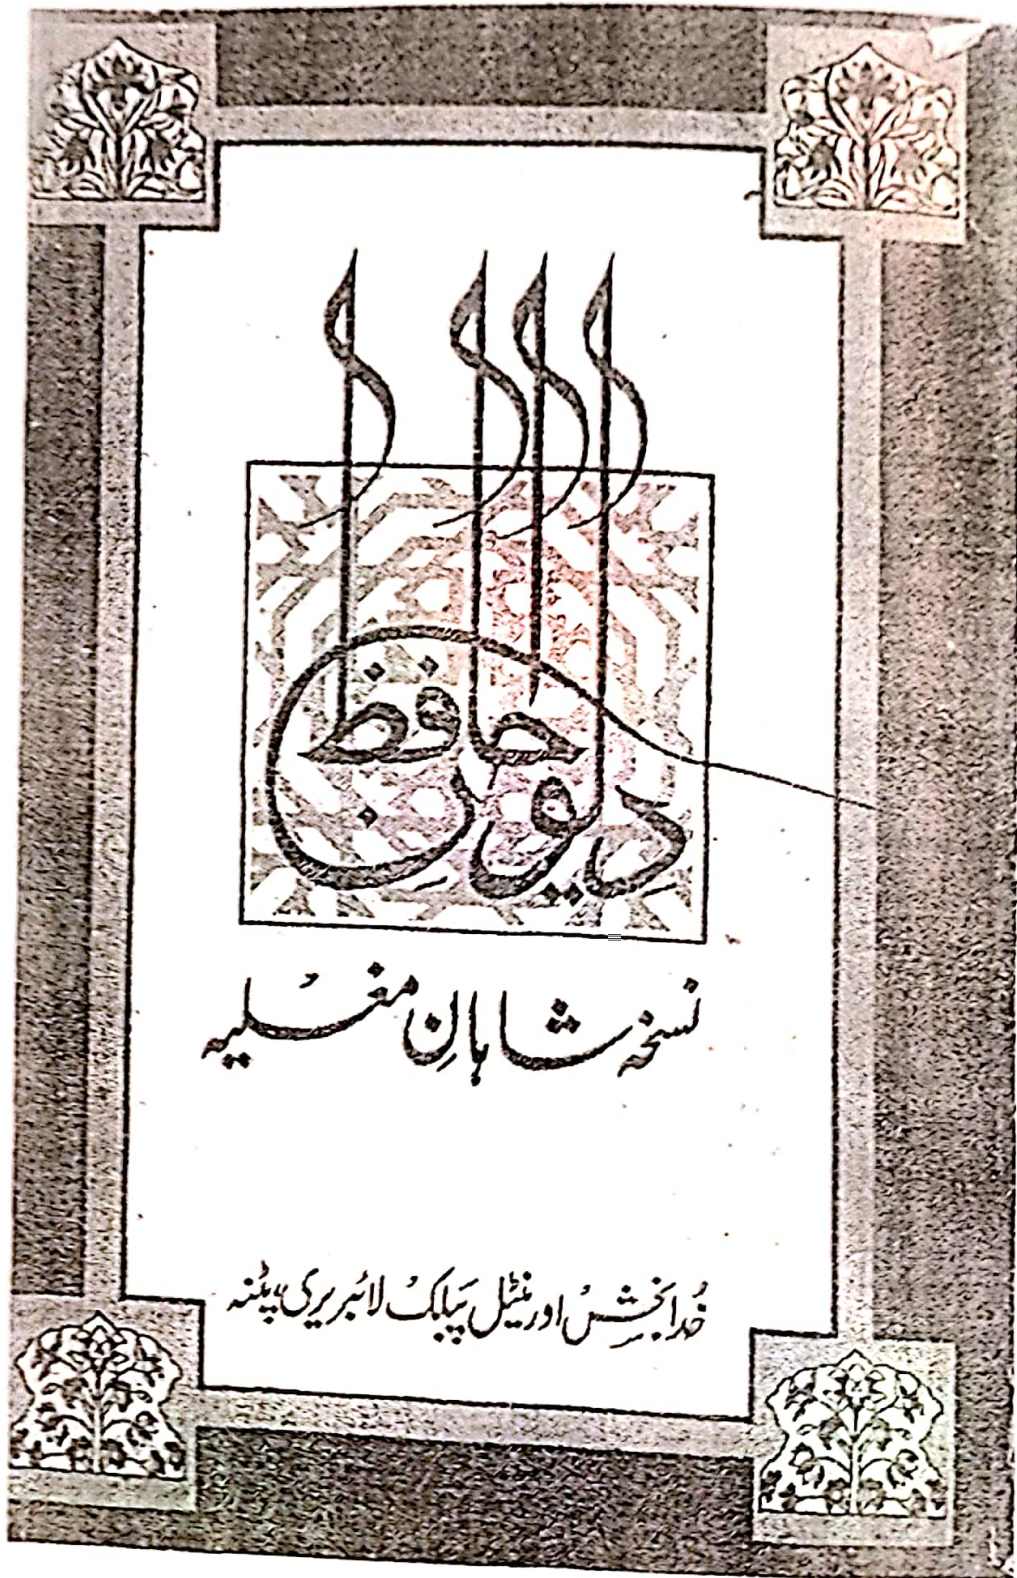 دیوان حافظ
نسخہ شاہانِ مغلیہ
خُدا بخش اورینٹل پبلک لائبریری، پٹنہ